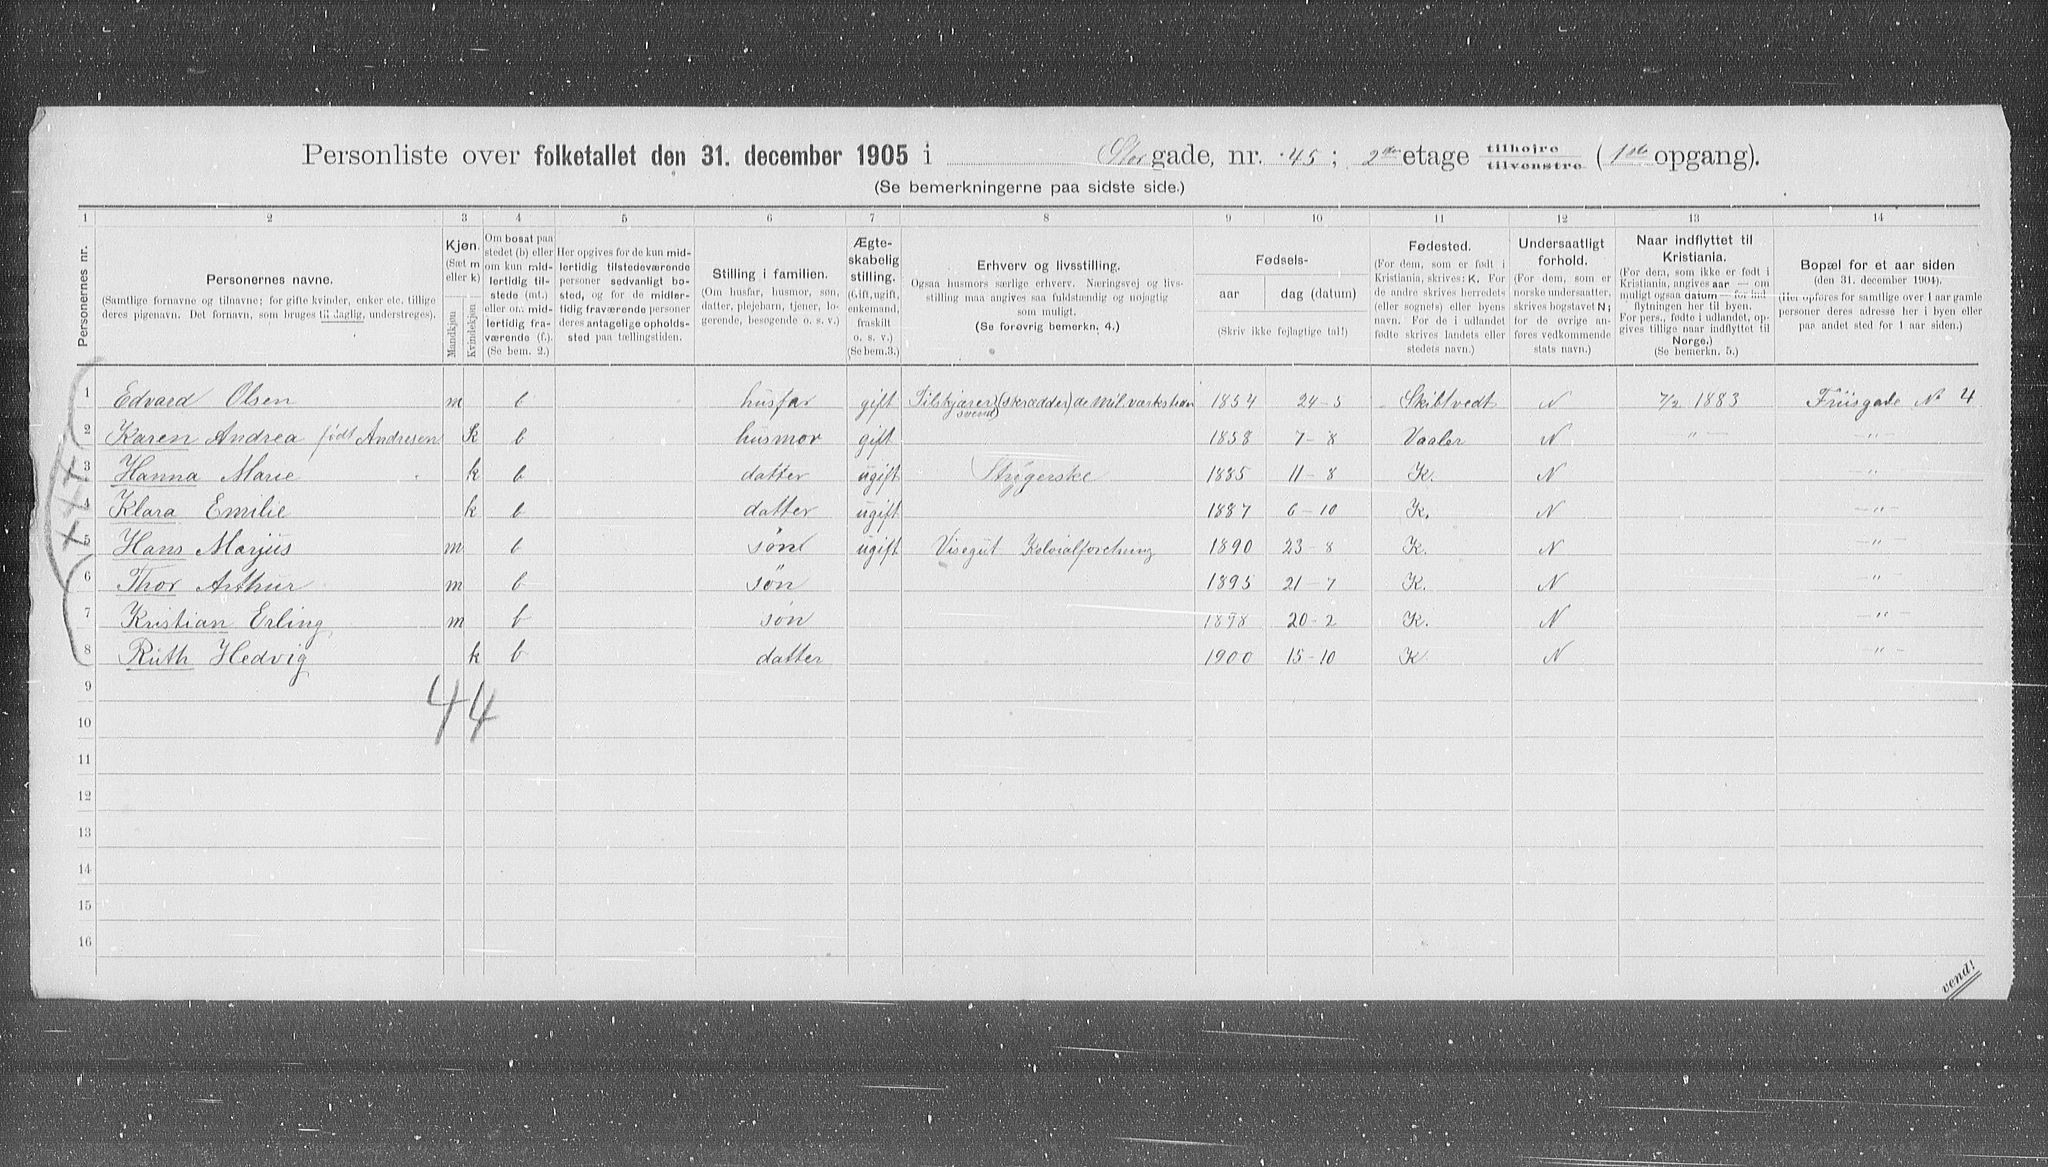 Personliste over folketallet den 31. december 1905 i Storgade, nr. 45; 2den etage tilhøire tilvenstre (1ste opgang).
(Se bemerkningerne paa sidste side.)
1 2 3 4 5 6 7 8 9 10 11 12 13 14
Personernes nr.
Personernes navne.
(Samtlige fornavne og tilnavne; for gifte kvinder, enker etc. tillige
deres pigenavn. Det fornavn, som bruges til daglig, understreges).
Kjøn.
(Sæt m
eller k)
Mandkjøn
Kvindekjøn
Om bosat paa
stedet (b) eller
om kun mid-
lertidig til-
stede (mt.)
eller om mid-
lertidig fra-
værende (f.).
(Se bem. 2.)
Her opgives for de kun mid-
lertidig tilstedeværende
personer sedvanligt bo-
sted, og for de midler-
tidig fraværende personer
deres antagelige opholds-
sted paa tællingstiden.
Stilling i familien.
(Om husfar, husmor, søn,
datter, plejebarn, tjener, lo-
gerende, besøgende o. s. v.)
Ægte-
skabelig
stilling.
(Gift, ugift,
enkemand,
fraskilt
o. s. v.)
(Se bem. 3.)
Erhverv og livsstilling.
Ogsaa husmors særlige erhverv. Næringsvej og livs-
stilling maa angives saa fuldstændig og nøjagtig
som muligt.
(Se forøvrig bemerkn. 4.)
Fødsels-
aar dag (datum)
(Skriv ikke fejlagtige tal!)
Fødested.
(For dem, som er født i
Kristiania, skrives: K. For
de andre skrives herredets
(eller sognets) eller byens
navn. For de i udlandet
fødte skrives landets eller
stedets navn.)
Undersaatligt
forhold.
(For dem, som er
norske undersaatter,
skrives bogstavet N;
for de øvrige an-
føres vedkommende
stats navn.)
Naar indflyttet til
Kristiania.
(For dem, som ikke er født i
Kristiania, angives aar — om
muligt ogsaa datum — for ind
flytningen her til byen.
For pers., fødte i udlandet, op-
gives tillige naar indflyttet til
Norge.)
(Se bemerkn. 5.)
Bopæl for et aar siden
(den 31. december 1904).
(Her opføres for samtlige over 1 aar gamle
personer deres adresse her i byen eller
paa andet sted for 1 aar siden.)
1 Edvard Olsen m b husfar gift Tilskjærer (skrædder) de Mil. værksteder 1854 24-5 Skibtvedt N 7/2 1883 Friisgade No 4
svend
2 Karen Andrea født Andresen k b husmor gift 1858 7-8 Vaaler N -"- -"-
3 Hanna Marie k b datter ugift Strygerske 1885 11-8 K. N -"-
4 Klara Emilie k b datter ugift 1887 6-10 K. N -"-
5 Hans Marjus m b søn ugift Visegut Kolonialforretning 1890 23-8 K. N -"-
6 Thor Arthur m b søn 1895 21-7 K. N -"-
7 Kristian Erling m b søn 1898 20-2 K. N -"-
8 Ruth Hedvig k b datter 1900 15-10 K N -"-
9
44
10
11
12
13
14
15
16
vend!